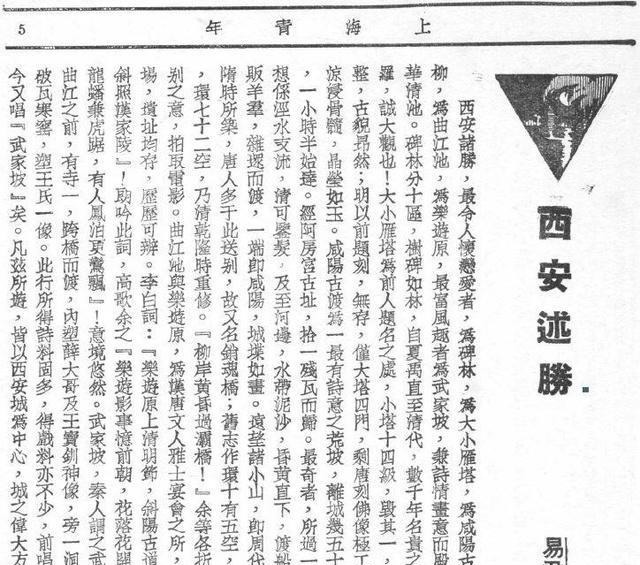 上海青年
5
西安述勝
易
西安諸勝,最令人懷戀愛者,爲碑林,爲大小雁塔,爲咸陽古
柳,爲曲江池,爲樂遊原,最富風趣者爲武家坡,兼詩情畫意而
華清池。碑林分十區,樹碑如林,自夏禹直至清代,數千年名貴之
羅,誠大觀也!大小雁塔爲前人題名之處,小塔十四級,毀其一,
整,古貌昂然;明以前題刻,無存,僅大塔四門,剩唐刻佛像極工
涼浸骨髓,晶瑩如玉。咸陽古渡爲一最有詩意之荒坡,離城幾五十
,一小時半始達。經阿房宮古址,拾一殘瓦而歸。最奇者,所過一
想係涇水支流,清可鑒髮,及至河邊,水帶泥沙,昏黃直下,渡船
販羊羣,雜遝而渡,一端即咸陽,城堞如畫。遠望諸小山,即周代
隋時所築,唐人多于此送別,故又名銷魂橋;舊志作環十有五空,
,環七十二空,乃清乾隆時重修。『柳岸黃昏過灞橋!』余等各折
別之意,拍取電影。曲江池與樂遊原,爲漢唐文人雅士宴會之所,
場,遺址均存,歷歷可辨。李白詞:『樂遊原上清明節,斜陽古道
斜照漢家陵』!助吟此詞,高歌余之『樂遊影事憶前朝,花落花開
龍蟠兼虎踞,有人鳳泊更鸞飄』!意境悠然。武家坡,秦人謂之武
曲江之前,有寺一,跨橋而渡,內塑薛大哥及王寶釧神像,旁一洞
破瓦寒窰,塑王氏一像。此行所得詩料固多,得戲料亦不少,前唱
今又唱『武家坡』矣。凡茲所遊,皆以西安城爲中心,城之偉大方